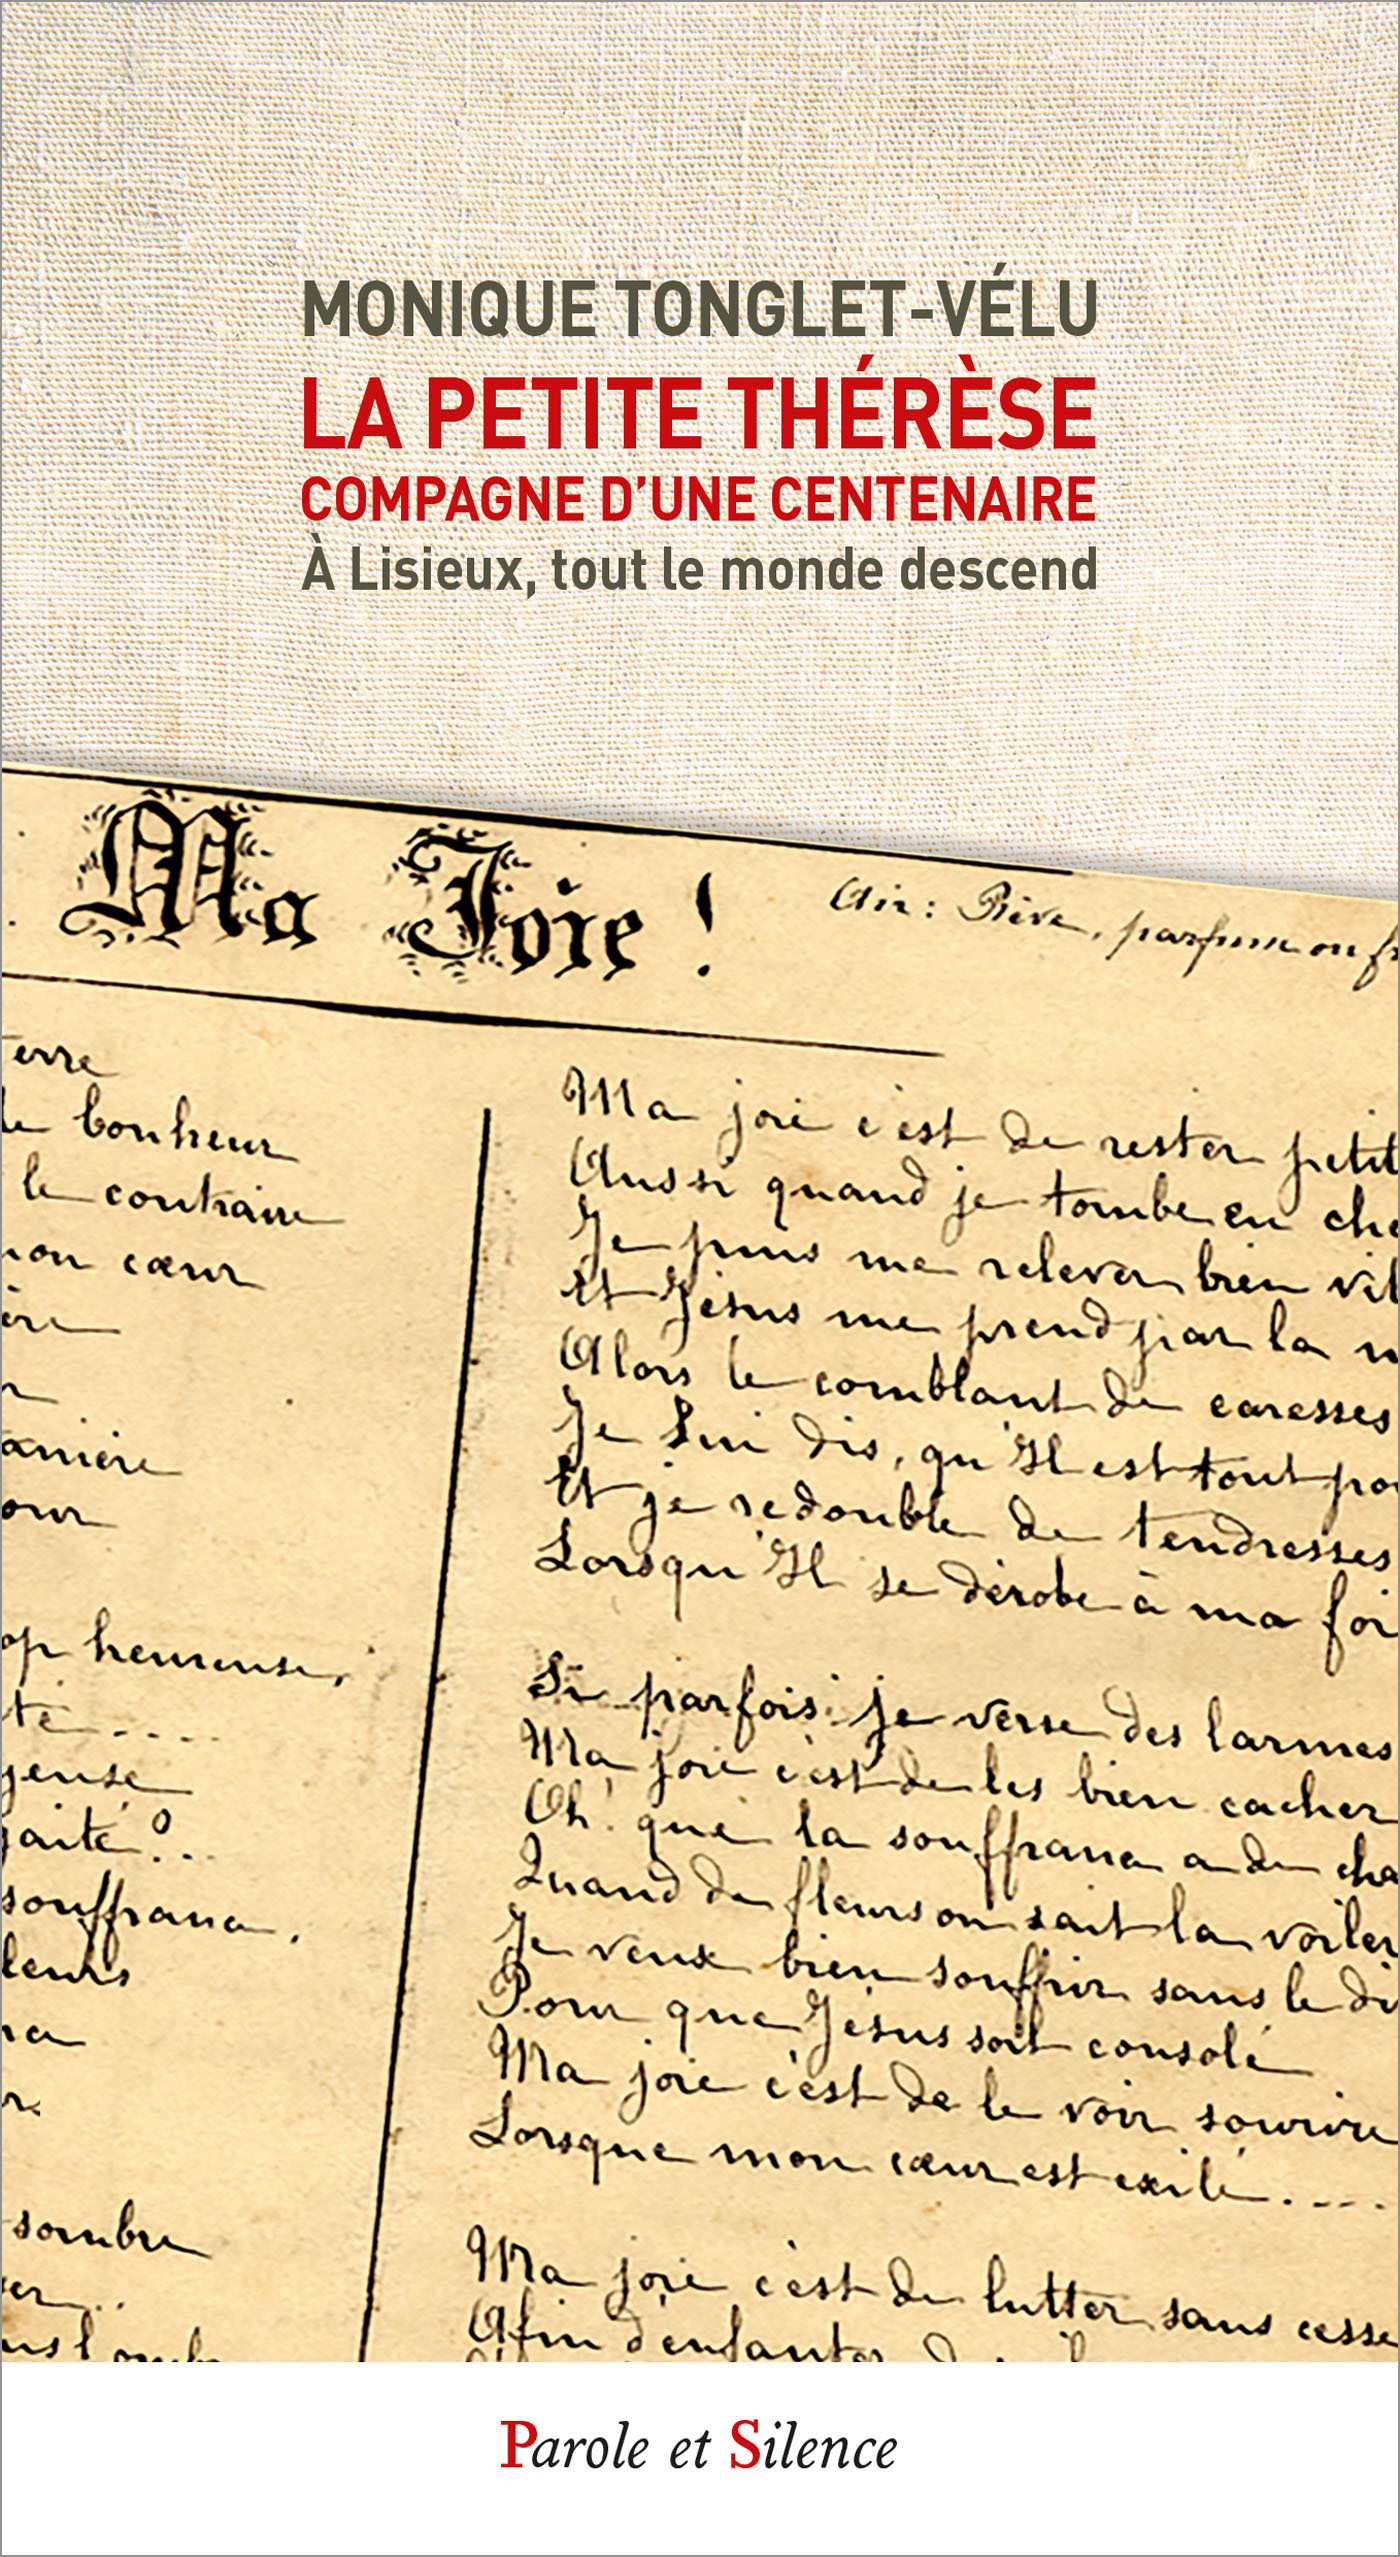 MONIQUE TONGLET-VÉLU
LA PETITE THÉRÈSE
COMPAGNE D'UNE CENTENAIRE
À Lisieux, tout le monde descend
Ma Joie !
Air : Rêve, parfum ou fr
erre
le bonheur
le contraire
mon cœur
ère
r
anière
our
op heureuse,
té ....
geuse
gaité ?..
souffrance,
leurs
na
er.
sombre
er..
Ma joie c'est de rester petit
Aussi quand je tombe en che
Je puis me relever bien vit
Et Jésus me prend par la m
Alors le comblant de caresses
Je Lui dis, qu'Il est tout pou
Et je redouble de tendresses
Lorsqu'Il se dérobe à ma foi
Si parfois je verse des larmes
Ma joie c'est de les bien cacher
Oh ! que la souffrance a de cha
Quand de fleurs on sait la voiler
Je veux bien souffrir sans le di
Pour que Jésus soit consolé
Ma joie c'est de le voir sourire
Lorsque mon cœur est exilé....
Ma joie c'est de lutter sans cesse
Afin d'enfanter
Parole et Silence